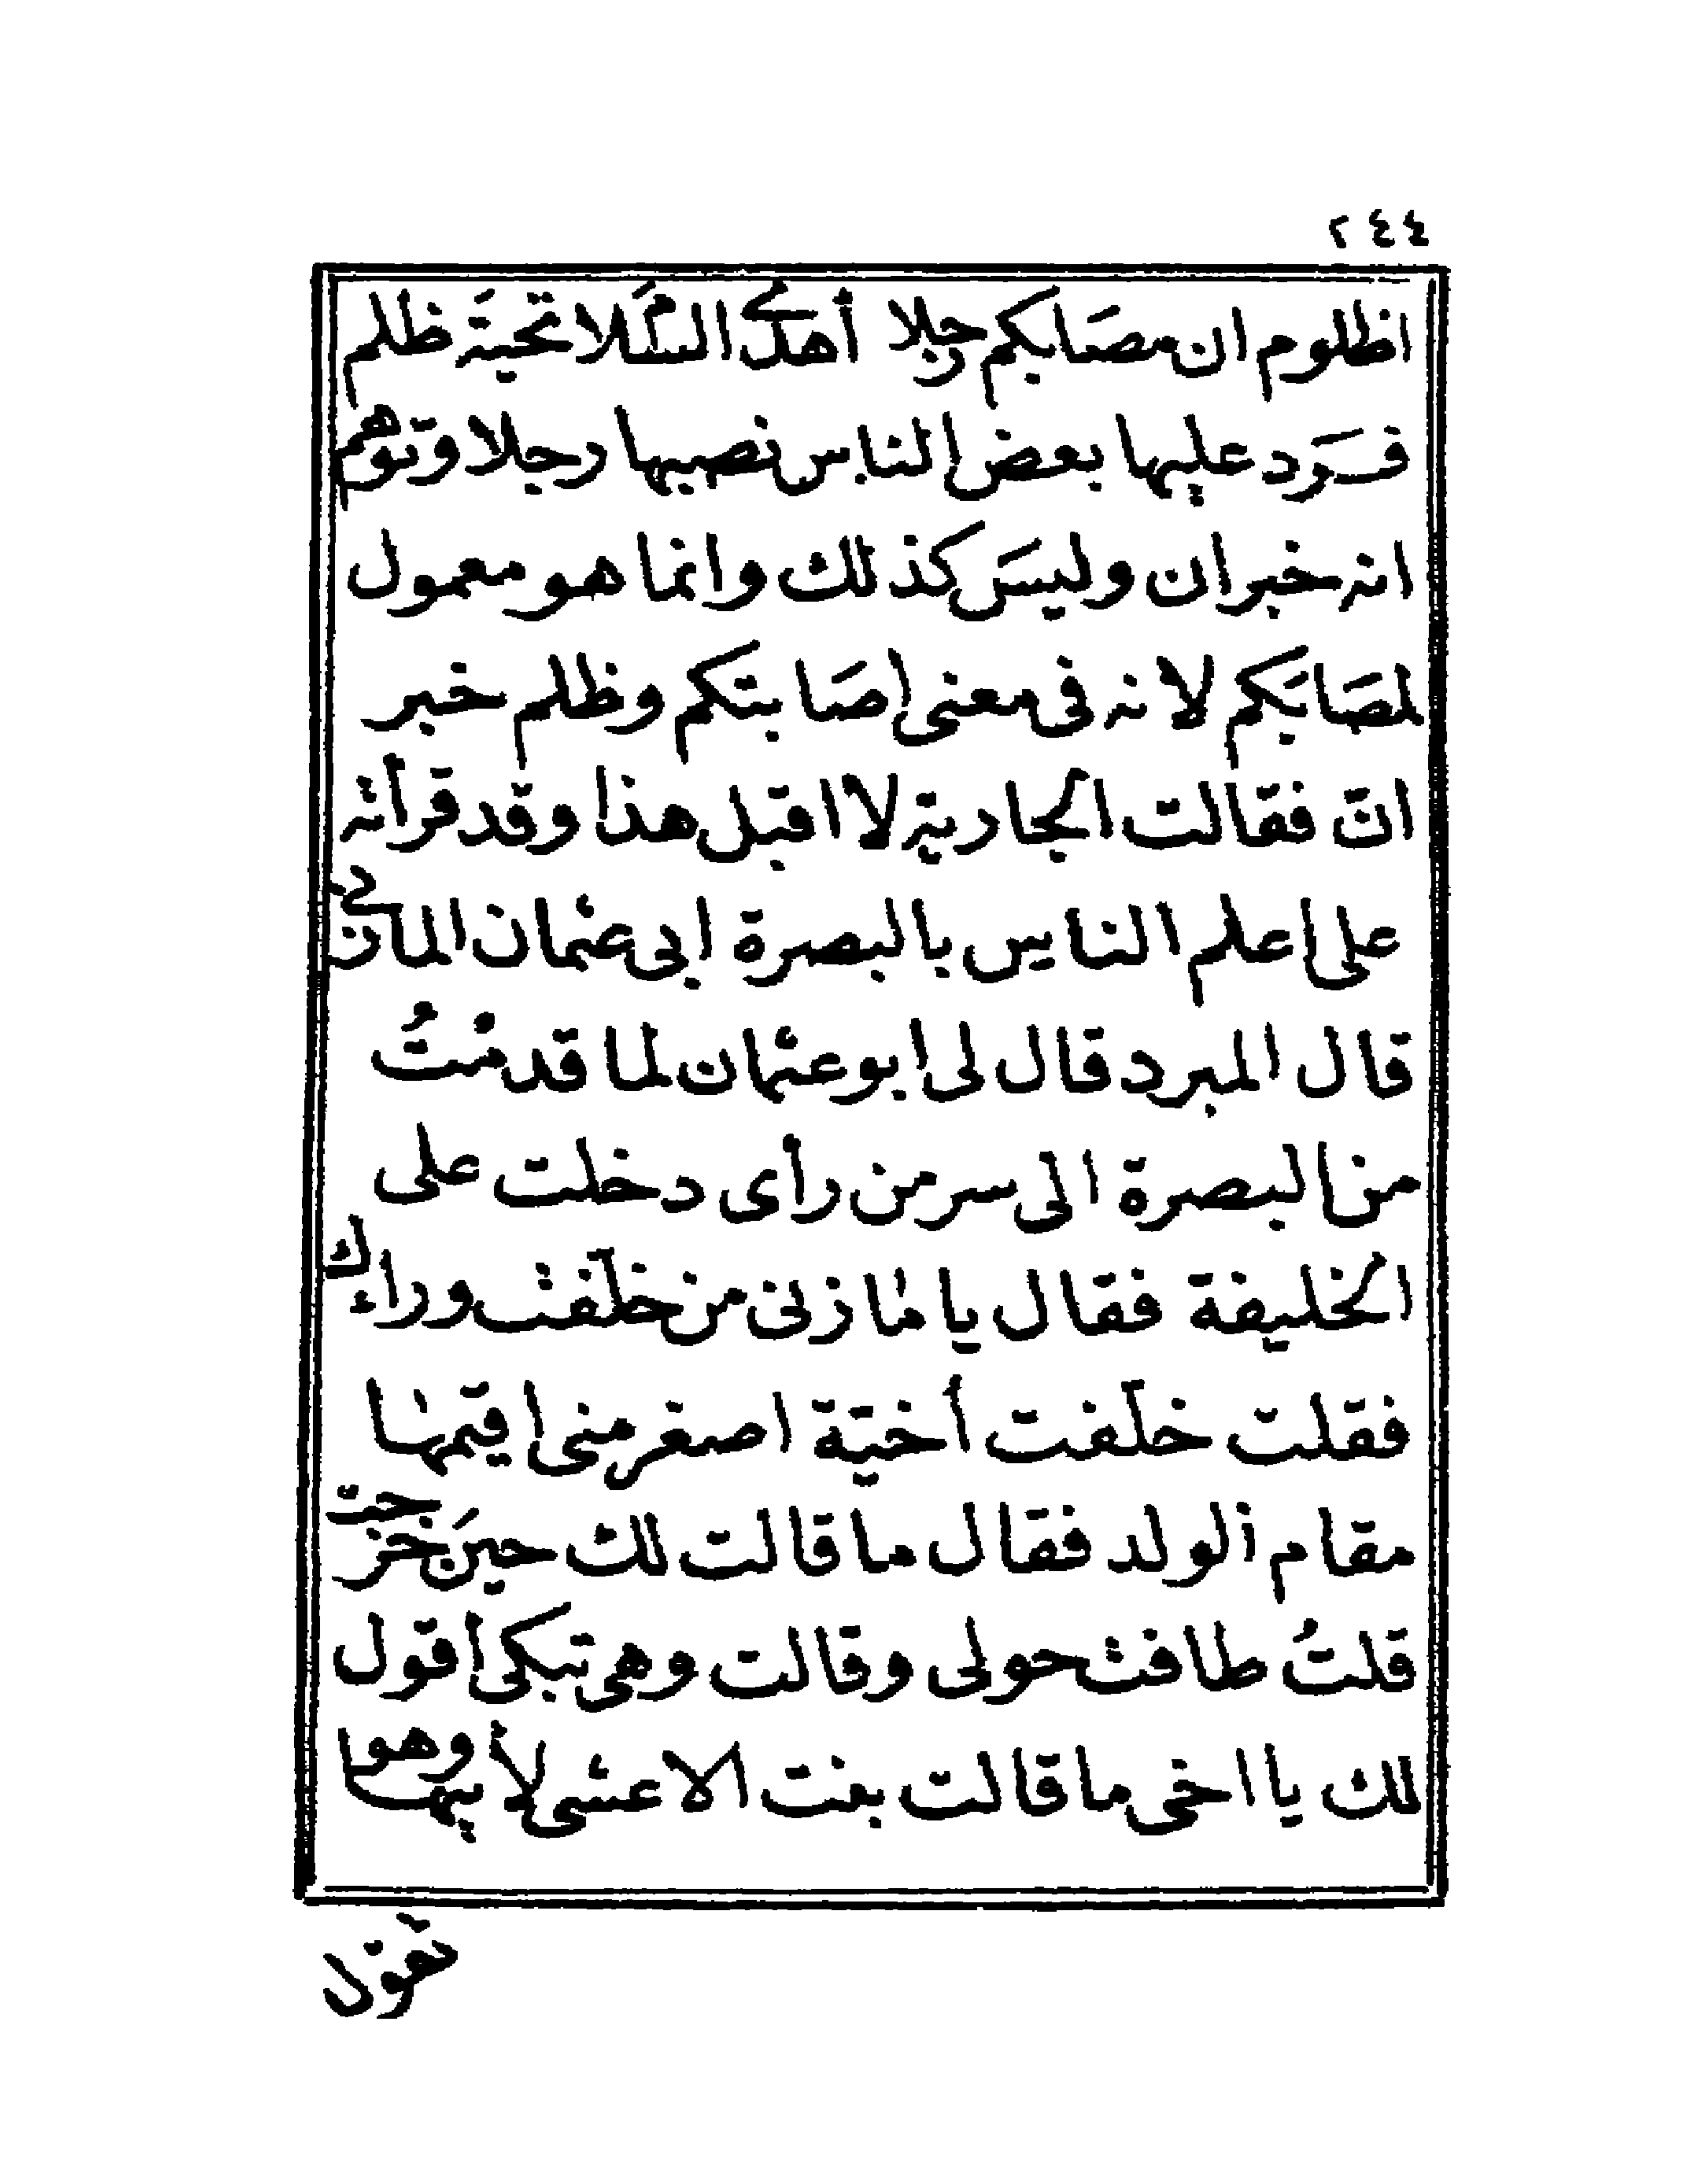 ٢٤٤
اظلوم ان مصَابكم رجلا أهدى السَّلام تحيَة ظلم
فَرَد عليها بعض الناس نصبها رجلا وتوهم
انه خبر ان وليسَ كذلك وانما هو معمول
لمصَابَكم لانه فى معنى اصَابتكم وظلم خبر
انّ فقالت الجارية لا اقبل هذا وقد قرأته
على اعلم الناس بالبصرة ابى عثمان المازنى
قال المبرد قال لى ابو عثمان لما قدمْتُ
من البصرة الى سر من رأى دخلت على
الخليفة فقال يا مازنى من خلّفت وراءك
فقلت خلّفت أخيّة اصغر منى اقيمها
مقام الولد فقال ما قالت لك حينَ خرجت
قلتُ طافت حولى وقالت وهى تبكى أقول
لك يا اخى ما قالت بنت الاعشى لأبيها وهو
تقول